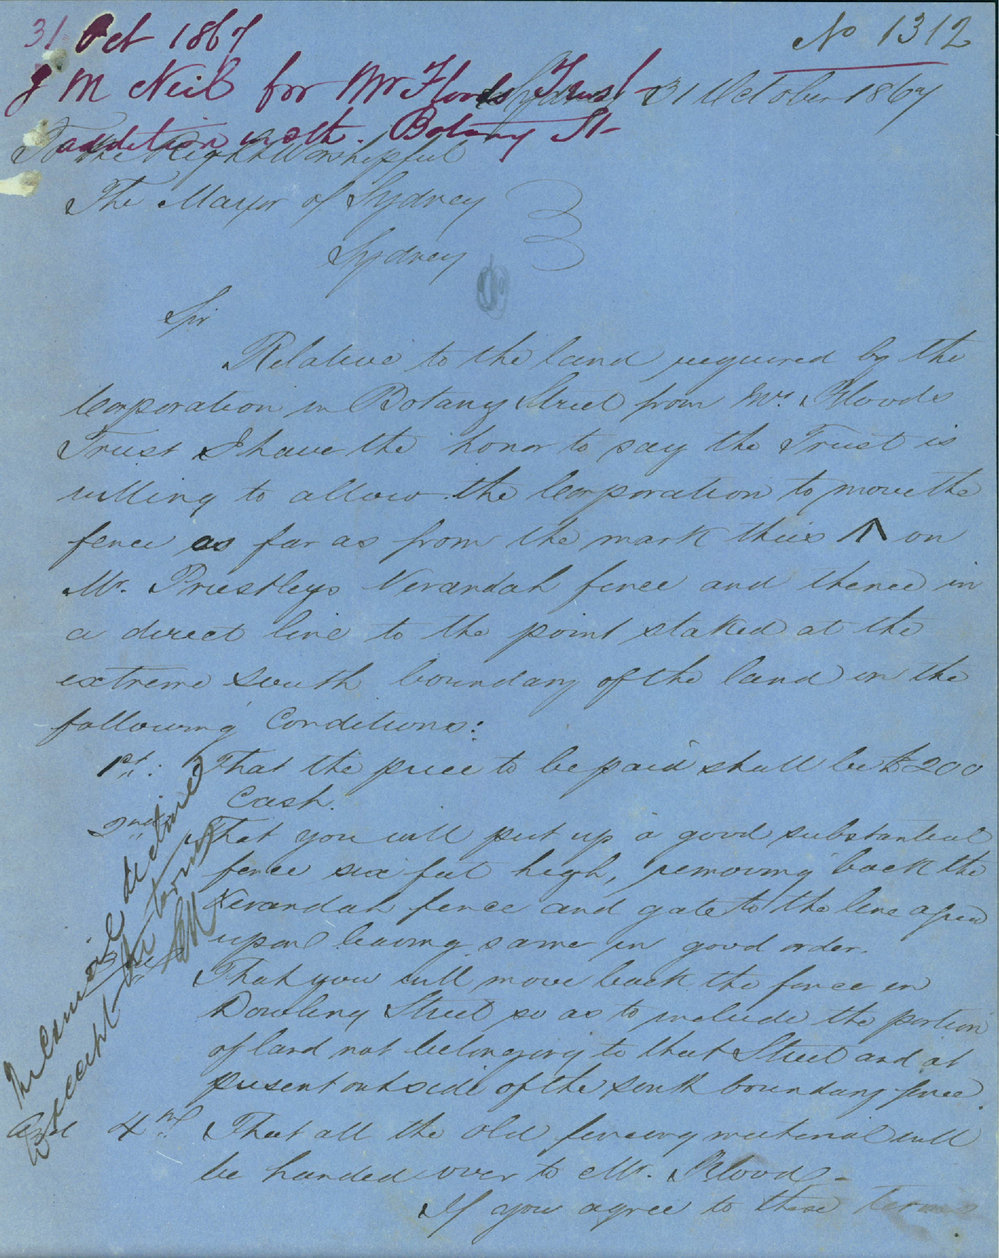 31 Oct 1867
No 1312
J M Neil for Mr Floods Trust
addition in sth. Botany St
Sydney 31 October 1867
To the Right Worshipful
The Mayor of Sydney
Sydney
Sir
Relative to the land required by the
Corporation in Botany Street from Mr. Floods
Trust I have the honor to say the Trust is
willing to allow the Corporation to move the
fence as far as from the mark thus Λ on
Mr. Priestleys Verandah fence and thence in
a direct line to the point staked at the
extreme south boundary of the land on the
following Conditions:
1st: That the price to be paid shall be £200
Cash.
2nd That you will put up a good substantial
fence six feet high, removing back the
Verandah fence and gate to the line agreed
upon leaving same in good order.
3rd That you will move back the fence in
Dowling Street so as to include the portion
of land not belonging to that Street and at
present outside of the south boundary fence.
4th That all the old fencing material will
be handed over to Mr. Flood.
If you agree to these terms
The Council declined
to accept the terms